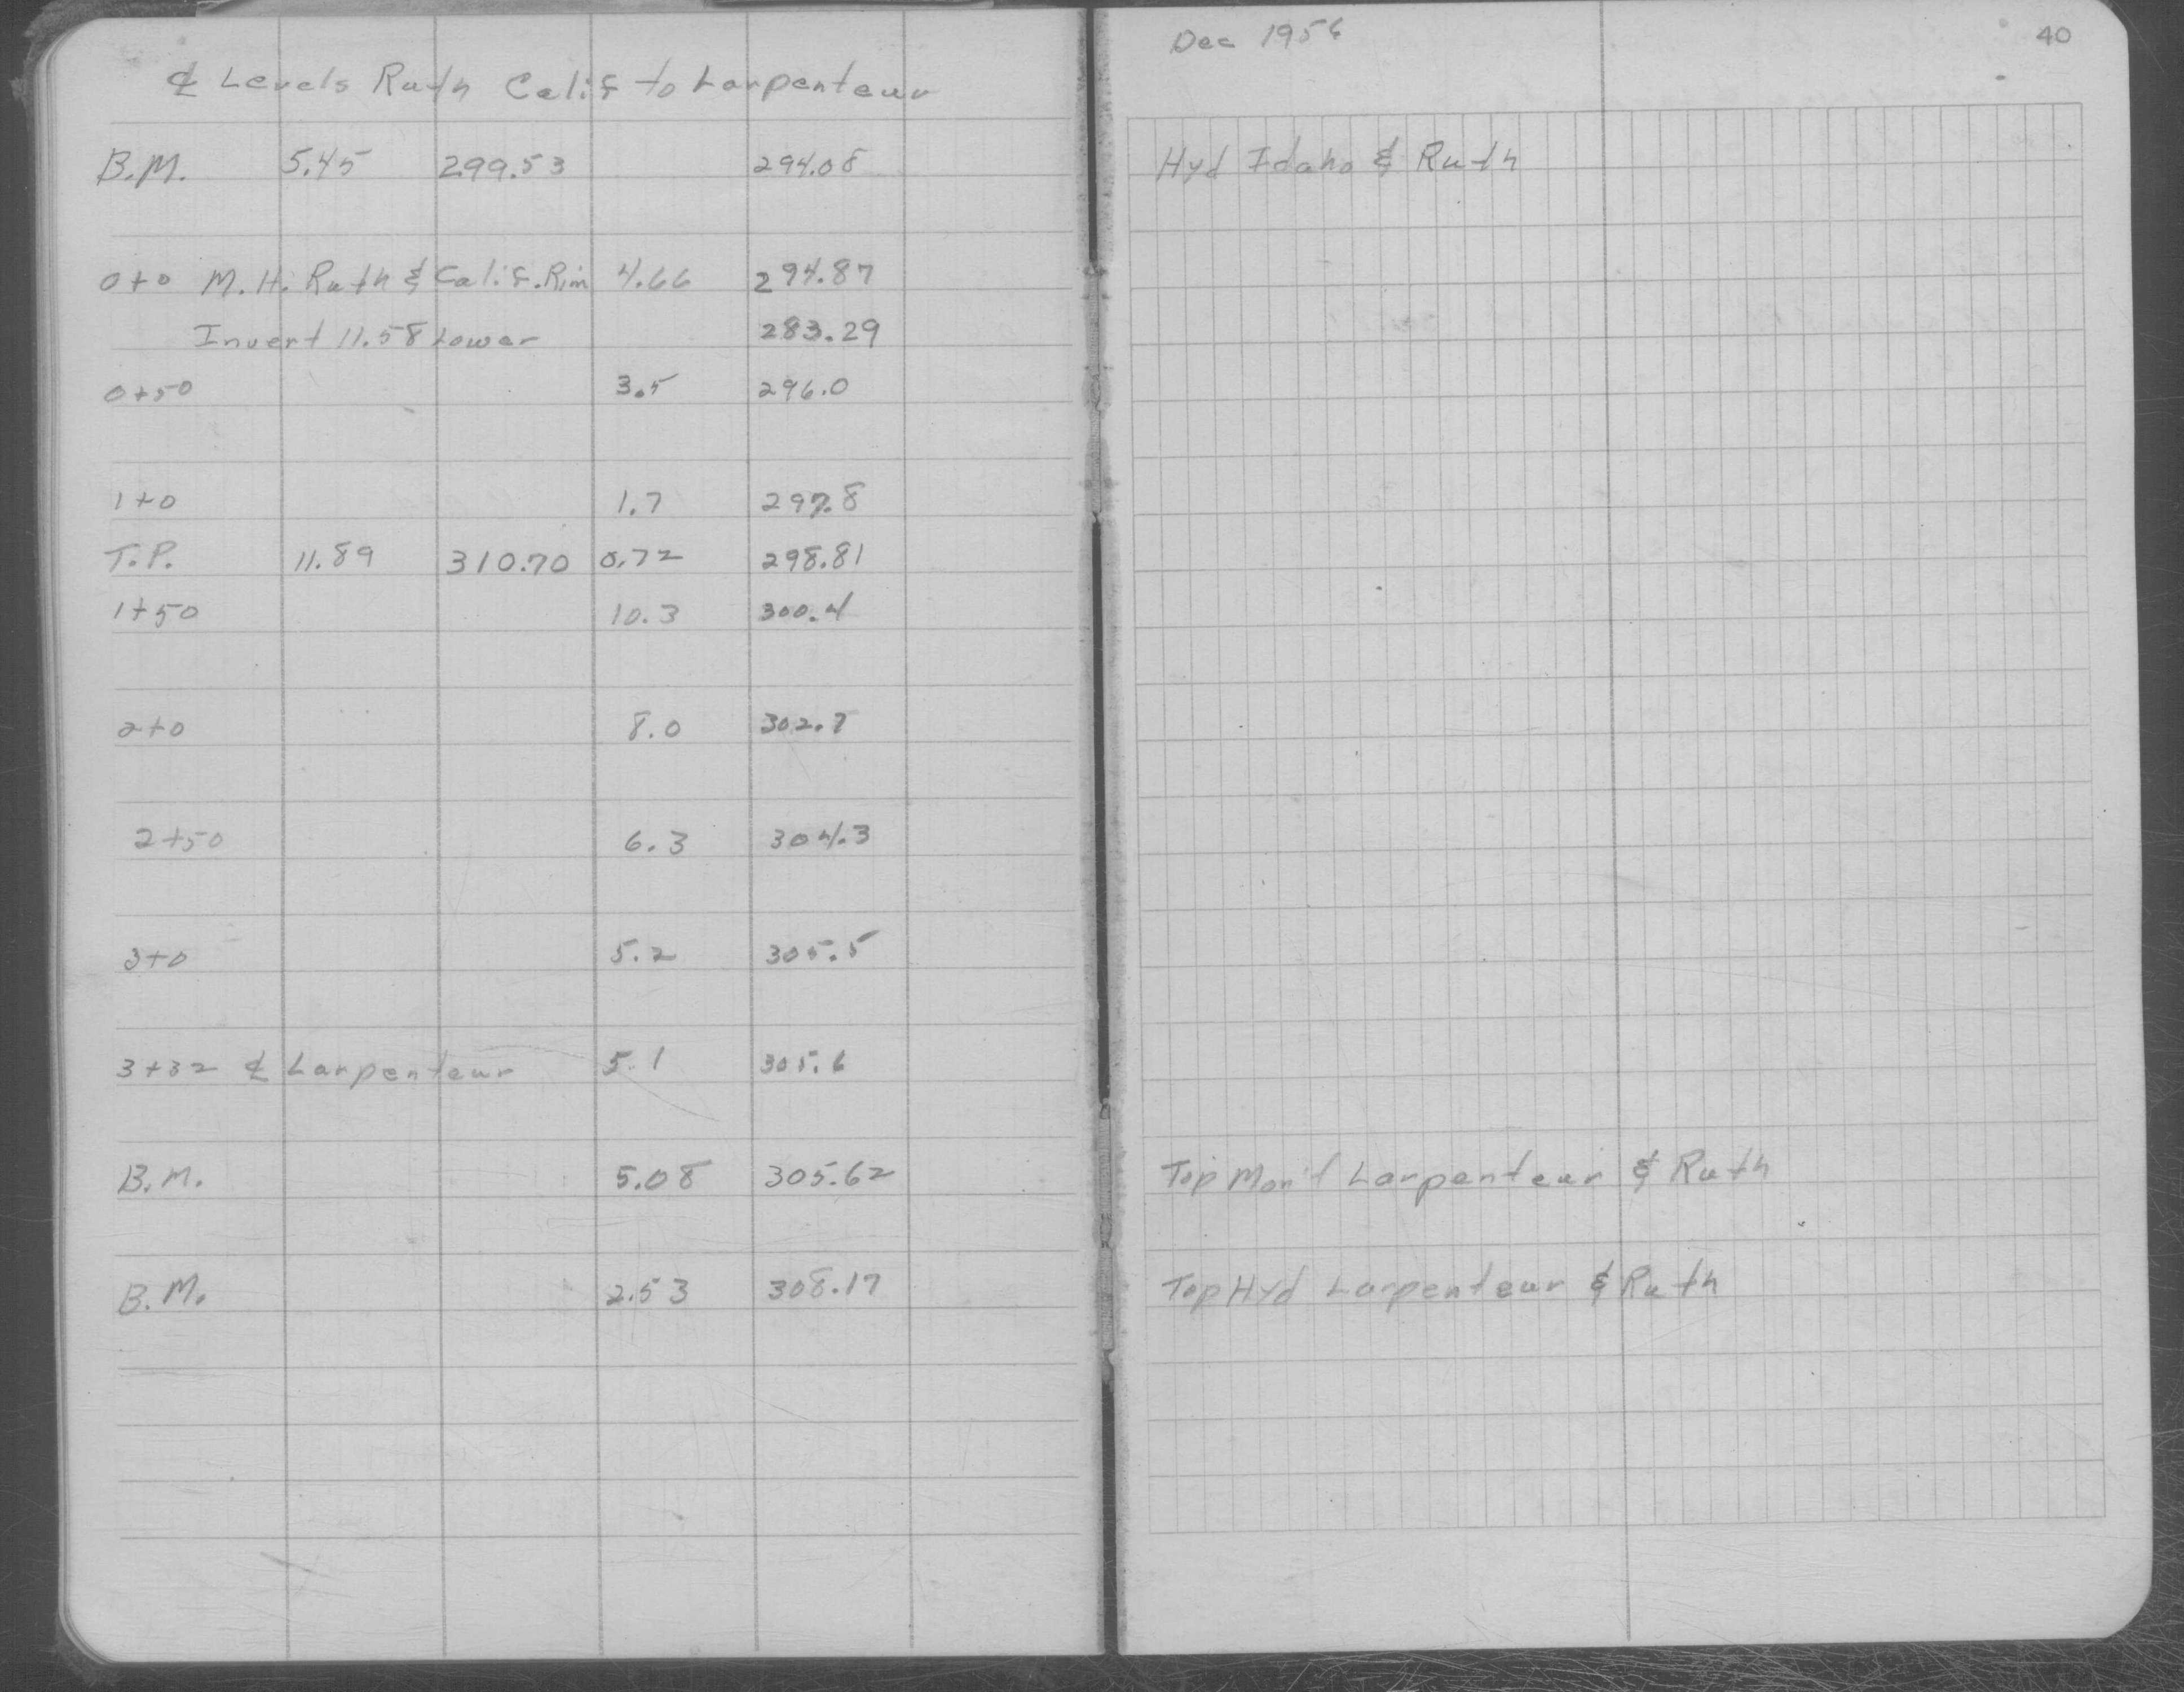 ℄ Levels Ruth Calif to Larpenteur
B.M. 5.45 299.53 294.08
0+0 M.H. Ruth & Calif. Rim 4.66 294.87
Invert 11.58 Lower 283.29
0+50 3.5 296.0
1+0 1.7 297.8
T.P. 11.89 310.70 0.72 298.81
1+50 10.3 300.4
2+0 8.0 302.7
2+50 6.3 304.3
3+0 5.2 305.5
3+32 ℄ Larpenteur 5.1 305.6
B.M. 5.08 305.62
B.M. 2.53 308.17
Dec 1956
40
Hyd Idaho & Ruth
Top Mon't Larpenteur & Ruth
Top Hyd Larpenteur & Ruth